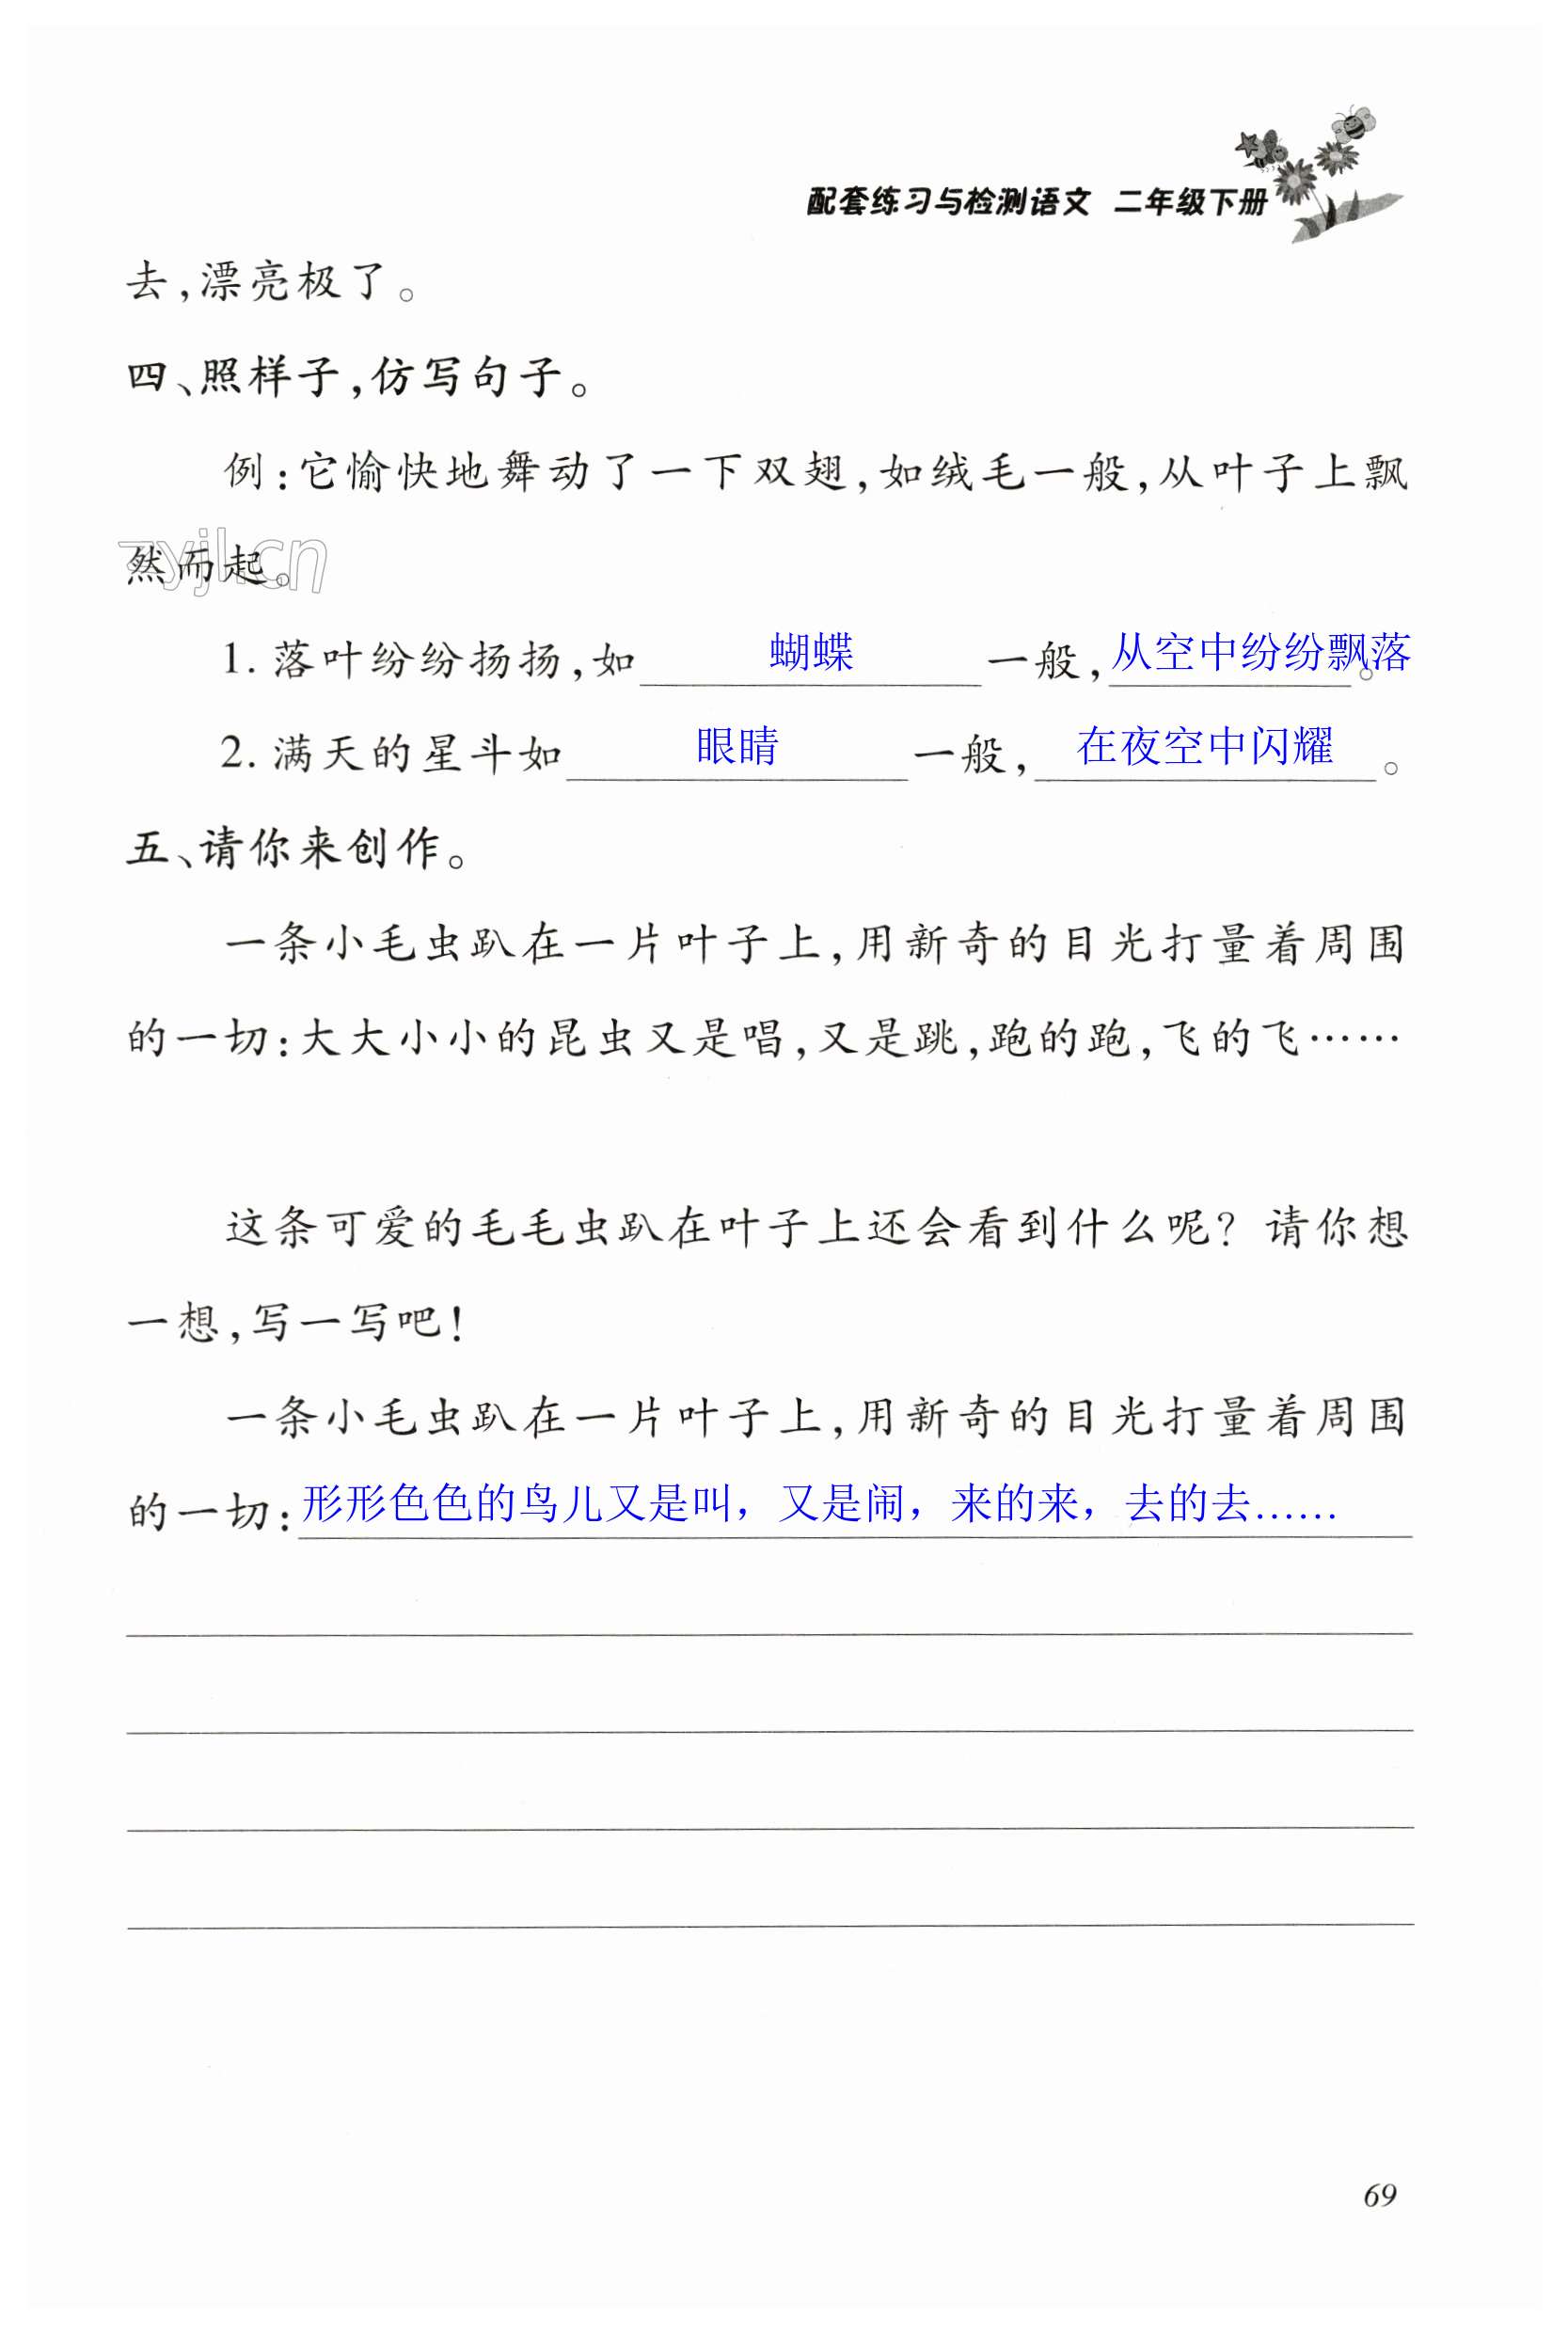 配套练习与检测语文 二年级下册
去,漂亮极了。
四、照样子,仿写句子。
例:它愉快地舞动了一下双翅,如绒毛一般,从叶子上飘
然而起。
zyjl.cn
1. 落叶纷纷扬扬,如 蝴蝶 一般, 从空中纷纷飘落。
2. 满天的星斗如 眼睛 一般, 在夜空中闪耀 。
五、请你来创作。
一条小毛虫趴在一片叶子上,用新奇的目光打量着周围
的一切:大大小小的昆虫又是唱,又是跳,跑的跑,飞的飞……
这条可爱的毛毛虫趴在叶子上还会看到什么呢? 请你想
一想,写一写吧!
一条小毛虫趴在一片叶子上,用新奇的目光打量着周围
的一切:形形色色的鸟儿又是叫，又是闹，来的来，去的去……
69